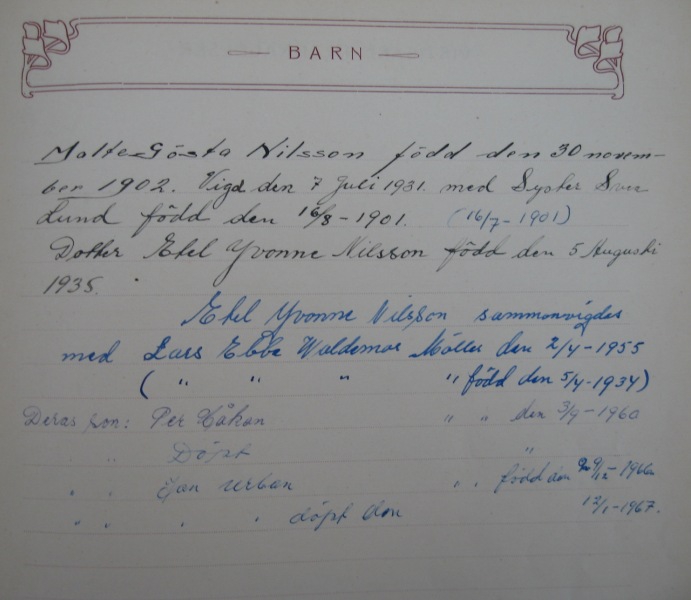 BARN
Malte Gösta Nilsson född den 30 novem-
ber 1902. Vigd den 7 Juli 1931. med Syster Svea
Lund född den 16/8-1901. (16/7-1901)
Dotter Etel Yvonne Nilsson född den 5 Augusti
1935.
Etel Yvonne Nilsson sammanvigdes
med Lars Ebbe Waldemar Möller den 2/4-1955
( " " " " född den 5/4-1934)
Deras son: Per Håkan " " den 3/9-1960
" Döpt "
" " Jan Urban " " född den 29/12-1966
" " " " döpt den 12/1-1967.